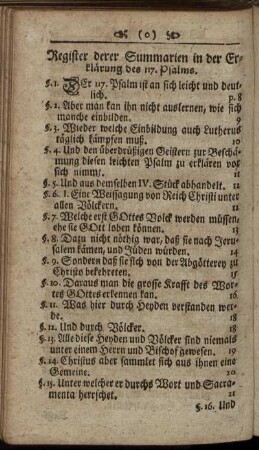 (o)
Register derer Summarien in der Er-
klärung des 117. Psalms.
§. 1. DEr 117. Psalm ist an sich leicht und deut-
lich. p. 8
§. 2. Aber man kan ihn nicht auslernen, wie sich
manche einbilden. 9
§. 3. Wieder welche Einbildung auch Lutherus
täglich kämpfen muß. 10
§. 4. Und den überdrüßigen Geistern zur Beschä-
mung diesen leichten Psalm zu erklären vor
sich nimmt. 11
§. 5. Und aus demselben IV. Stück abhandelt. 12
§. 6. I. Eine Weissagung von Reich Christi unter
allen Völckern. 12
§. 7. Welche erst GOttes Volck werden müssen,
ehe sie GOtt loben können. 13
§. 8. Dazu nicht nöthig war, daß sie nach Jeru-
salem kämen, und Jüden würden. 14
§. 9. Sondern daß sie sich von der Abgötterey zu
Christo bekehreten. 15
§. 10. Daraus man die grosse Krafft des Wor-
tes GOttes erkennen kan. 16
§. 11. Was hier durch Heyden verstanden wer-
de. 18
§. 12. Und durch Völcker. 18
§. 13. Alle diese Heyden und Völcker sind niemals
unter einem Herrn und Bischof gewesen. 19
§. 14. Christus aber sammlet sich aus ihnen eine
Gemeine. 20
§. 15. Unter welcher er durchs Wort und Sacra-
menta herrschet. 21
§. 16. Und